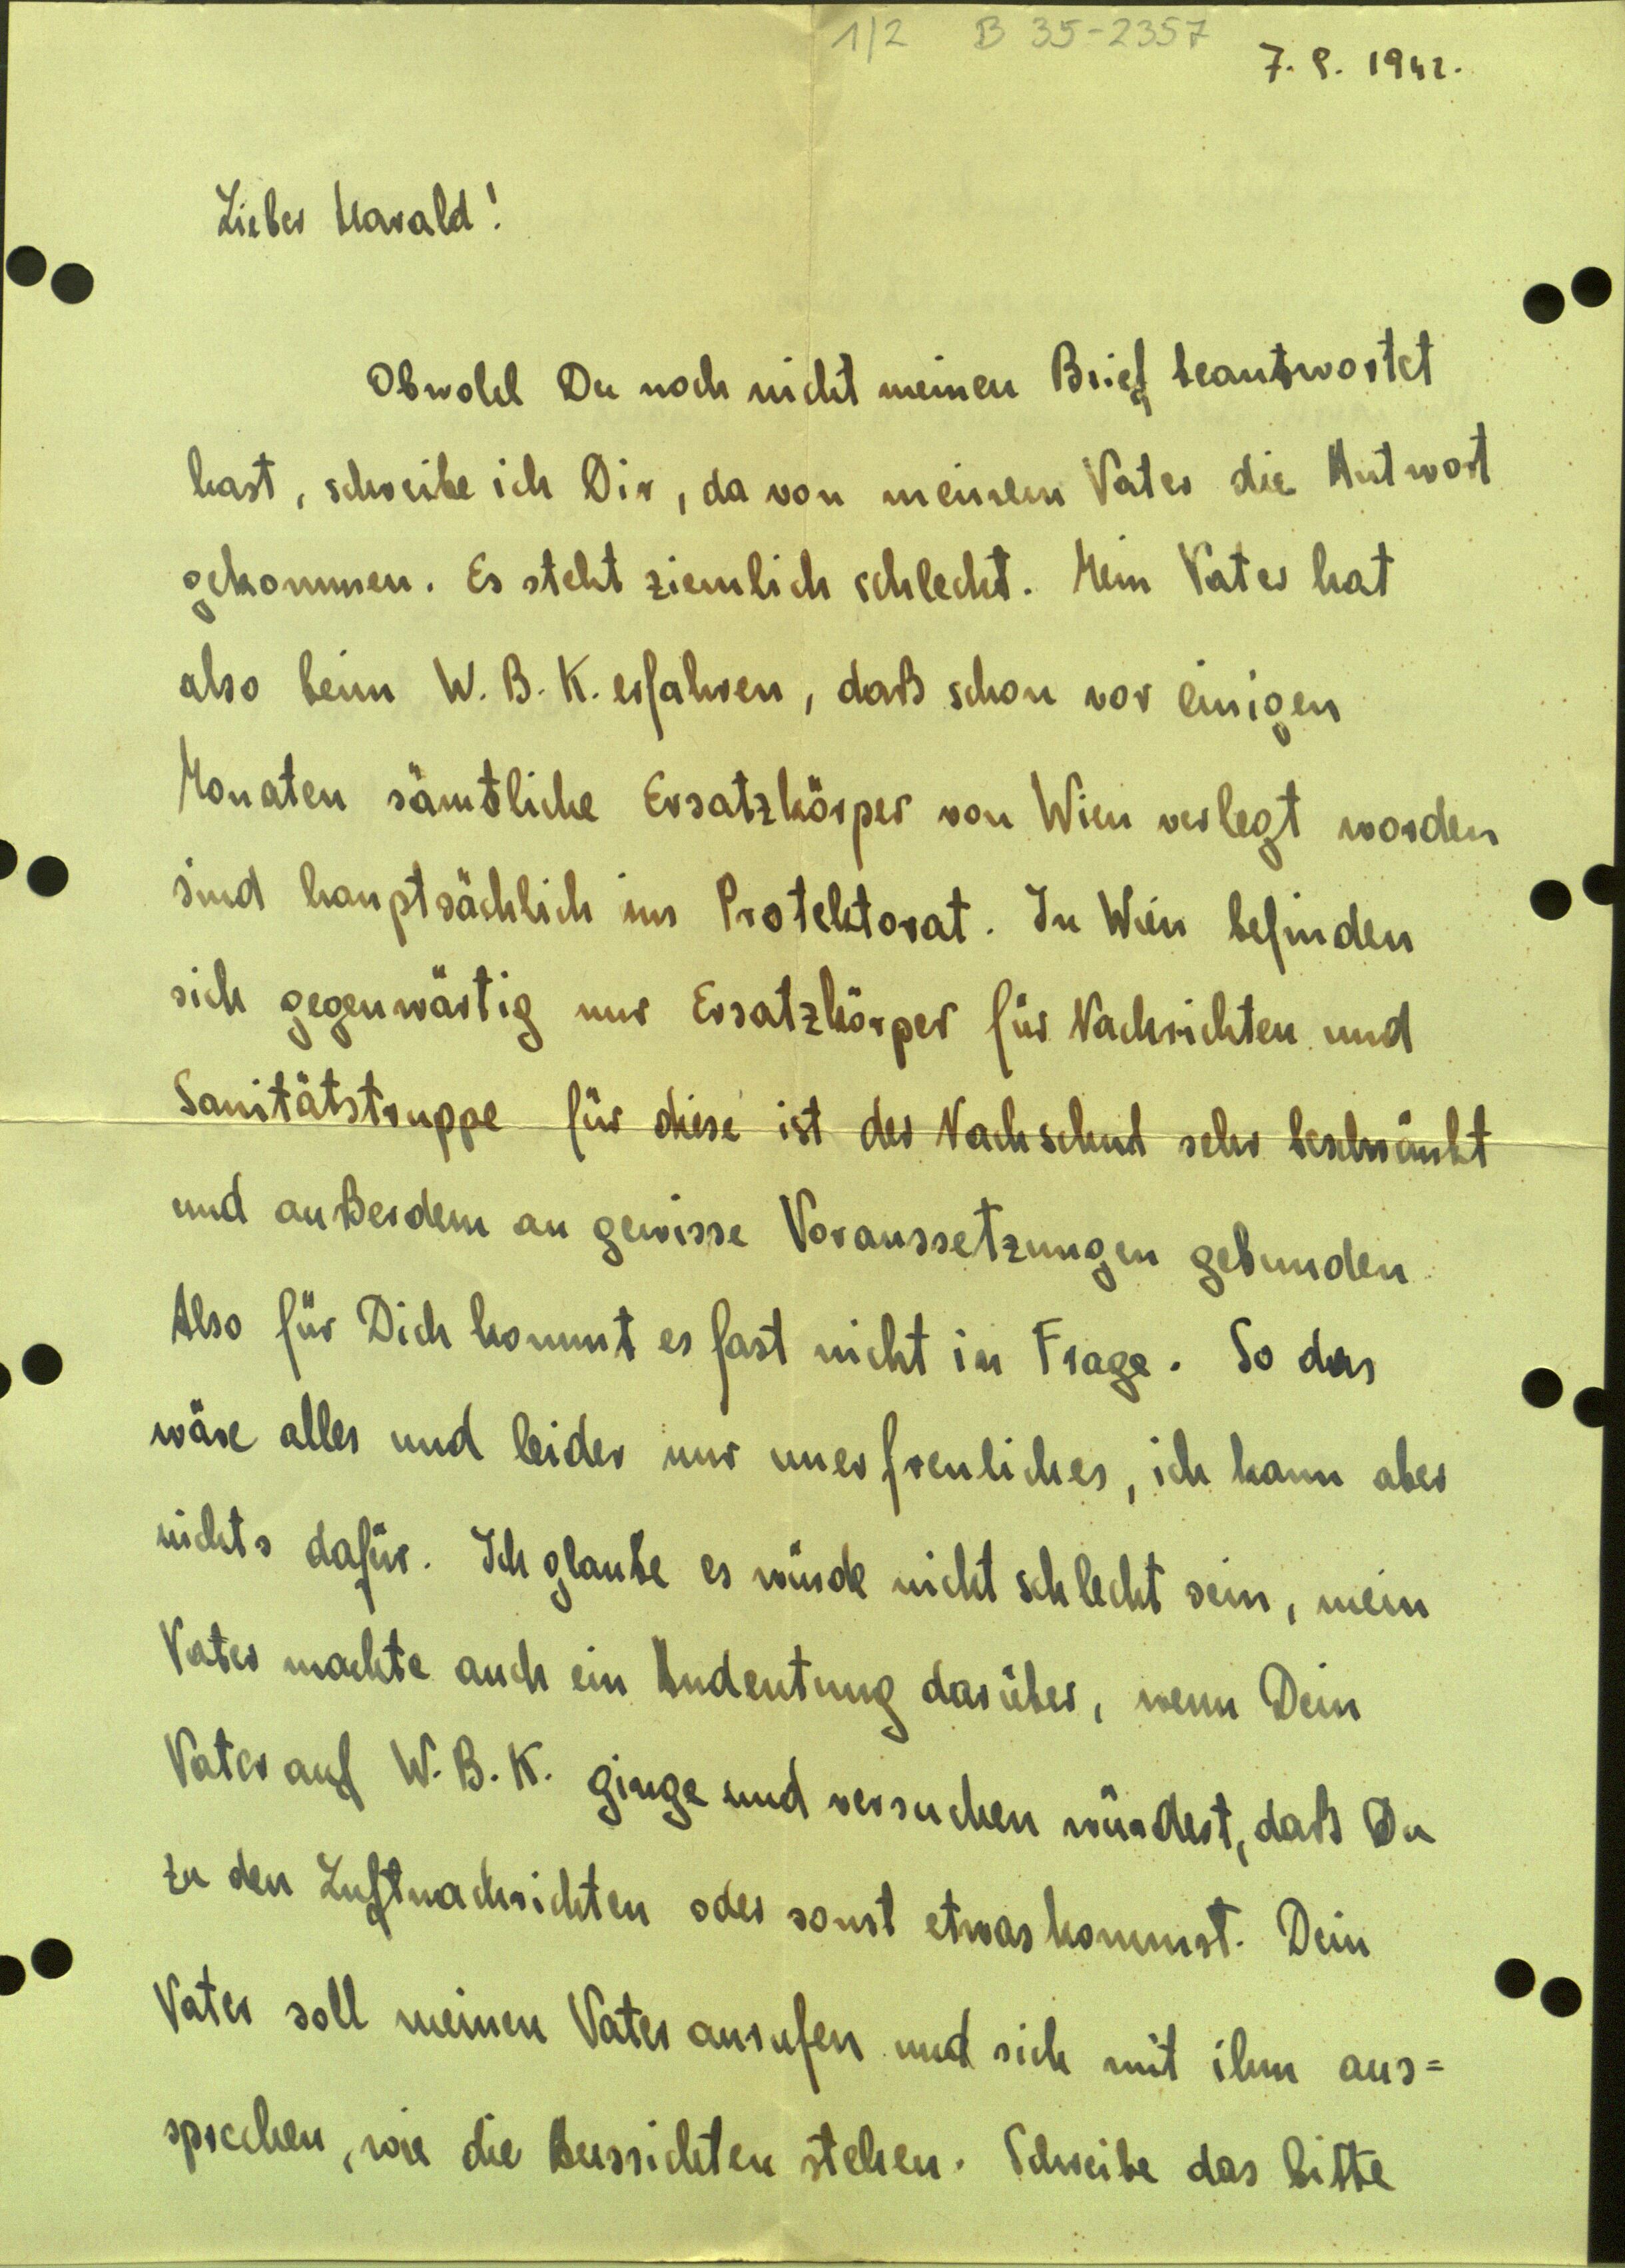 1/2 B 35-2357
7. 8. 1942.
Lieber Harald!
Obwohl Du noch nicht meinen Brief beantwortet
hast, schreibe ich Dir, da von meinem Vater die Antwort
gekommen. Es steht ziemlich schlecht. Mein Vater hat
also beim W. B. K. erfahren, daß schon vor einigen
Monaten sämtliche Ersatzkörper von Wien verlegt worden
sind hauptsächlich ins Protektorat. In Wien befinden
sich gegenwärtig nur Ersatzkörper für Nachrichten und
Sanitätstruppe für diese ist der Nachschub sehr beschränkt
und außerdem an gewisse Voraussetzungen gebunden
Also für Dich kommt es fast nicht in Frage. So das
wäre alles und leider nur unerfreuliches, ich kann aber
nichts dafür. Ich glaube es würde nicht schlecht sein, mein
Vater machte auch ein Andeutung darüber, wenn Dein
Vater auf W. B. K. ginge und versuchen würdest, daß Du
zu den Luftnachrichten oder sonst etwas kommst. Dein
Vater soll meinen Vater anrufen und sich mit ihm aus=
sprechen, wie die Aussichten stehen. Schreibe das bitte